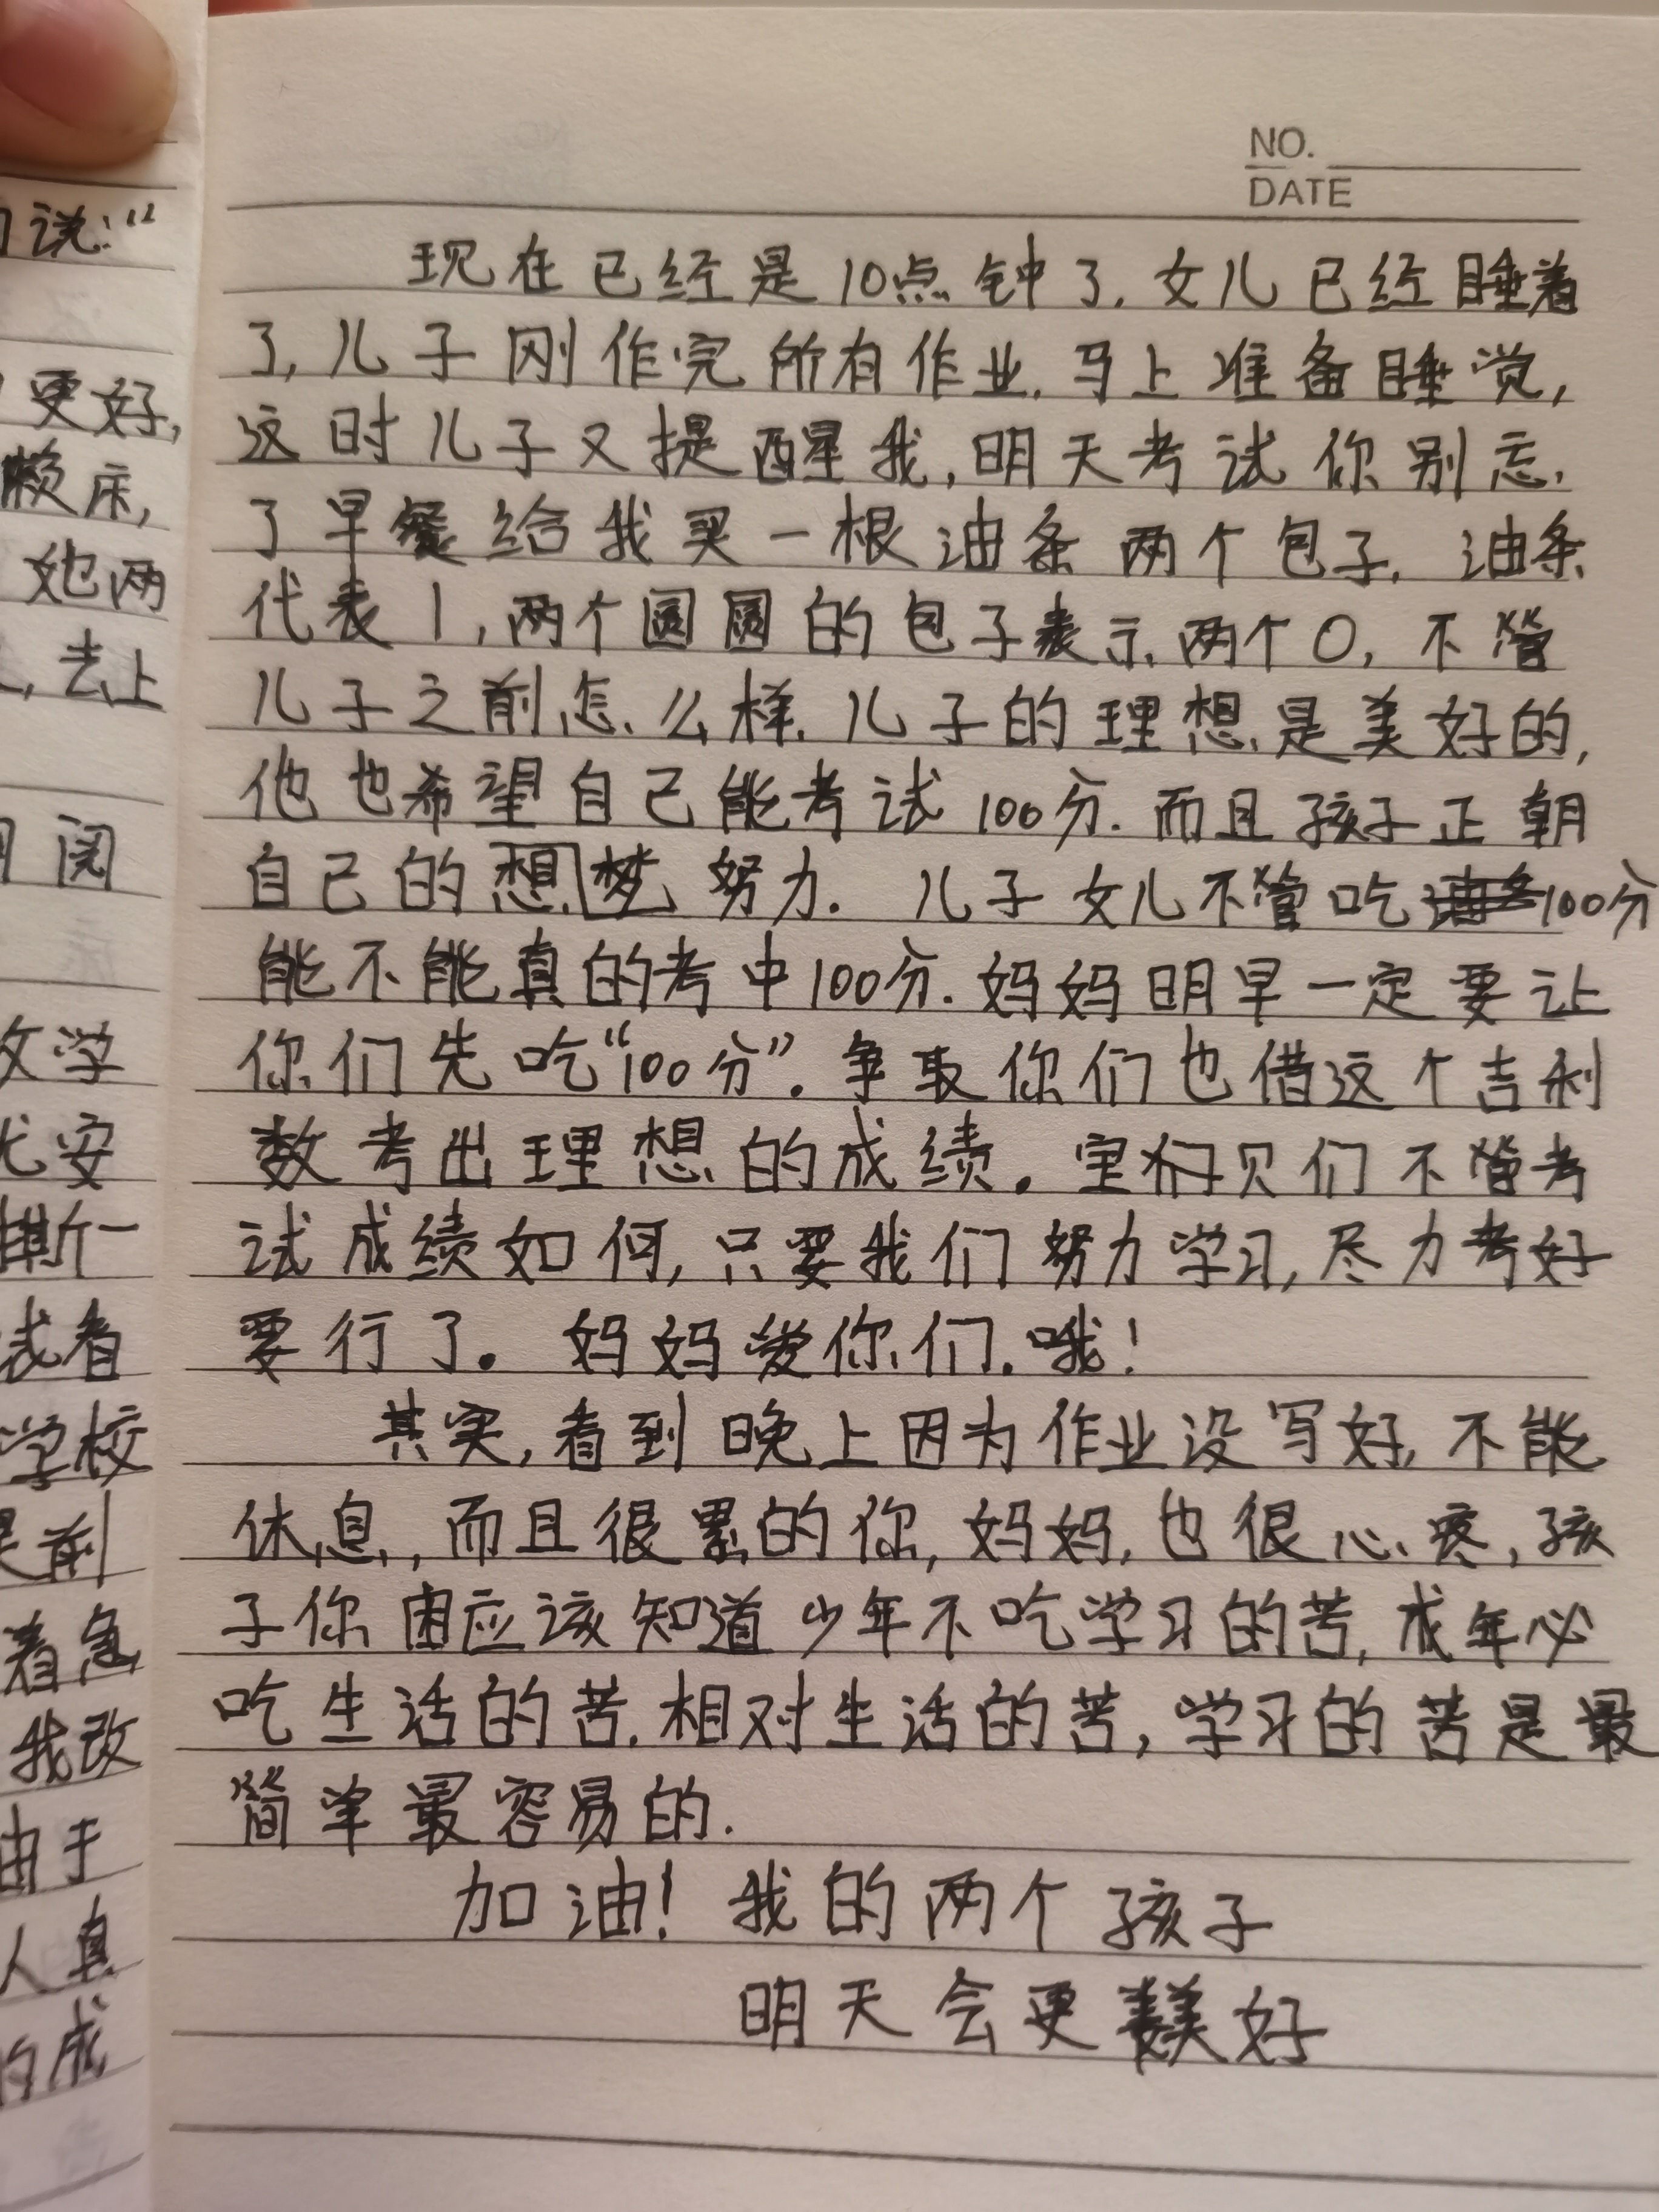 NO.
DATE
说:“
更好,
赖床,
她两
去上
阅
学
安
斯一
试着
学校
是前
着急
我改
由于
人真
的成
现在已经是10点钟了.女儿已经睡着
了,儿子刚作完所有作业.马上准备睡觉,
这时儿子又提醒我,明天考试你别忘.
了早餐给我买一根油条两个包子.油条
代表1,两个圆圆的包子表示两个0,不管
儿子之前怎么样.儿子的理想是美好的,
他也希望自己能考试100分.而且孩子正朝
自己的想梦努力.儿子女儿不管吃100分
能不能真的考中100分.妈妈明早一定要让
你们先吃“100分”.争取你们也借这个吉利
数考出理想的成绩。宝贝们不管考
试成绩如何,只要我们努力学习,尽力考好
要行了。妈妈爱你们.哦!
其实,看到晚上因为作业没写好,不能
休息,而且很累的你,妈妈,也很心疼,孩
子你应该知道少年不吃学习的苦,成年必
吃生活的苦.相对生活的苦,学习的苦是最
简单最容易的.
加油!我的两个孩子
明天会更美好